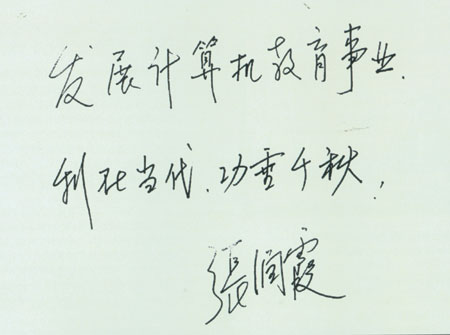 发展计算机教育事业.
利在当代,功垂千秋,
張润霞